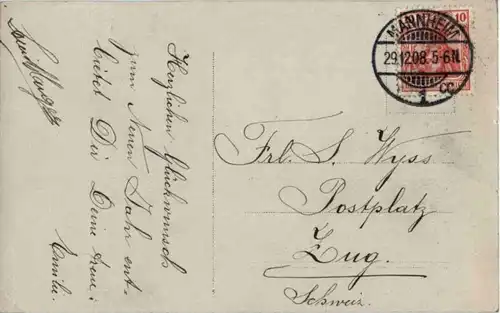 Herzlichen Glückwunsch
zum Neuen Jahr ent-
bietet Dir Deine treue:
Emilie.
10
MANNHEIM
29.12.08.5-6N.
1 cc
Frl. S. Wyss
Postplatz
Zug.
Schweiz.